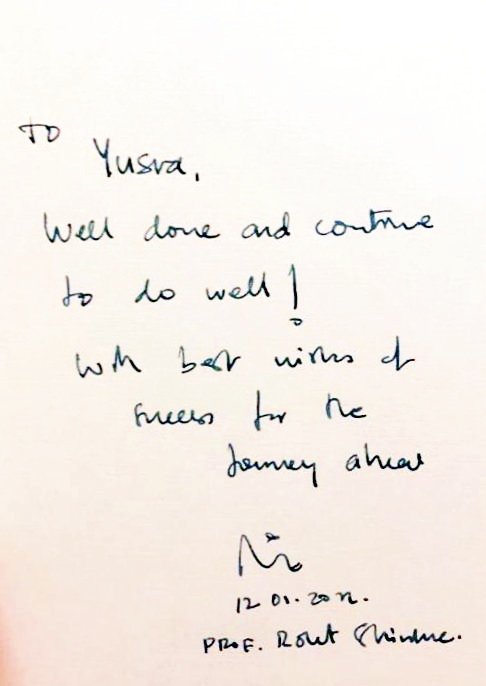 To
Yusra,
Well done and continue
to do well!
With best wishes of
success for the
journey ahead
12.01.2022.
PROF. Rohit Shinkre.